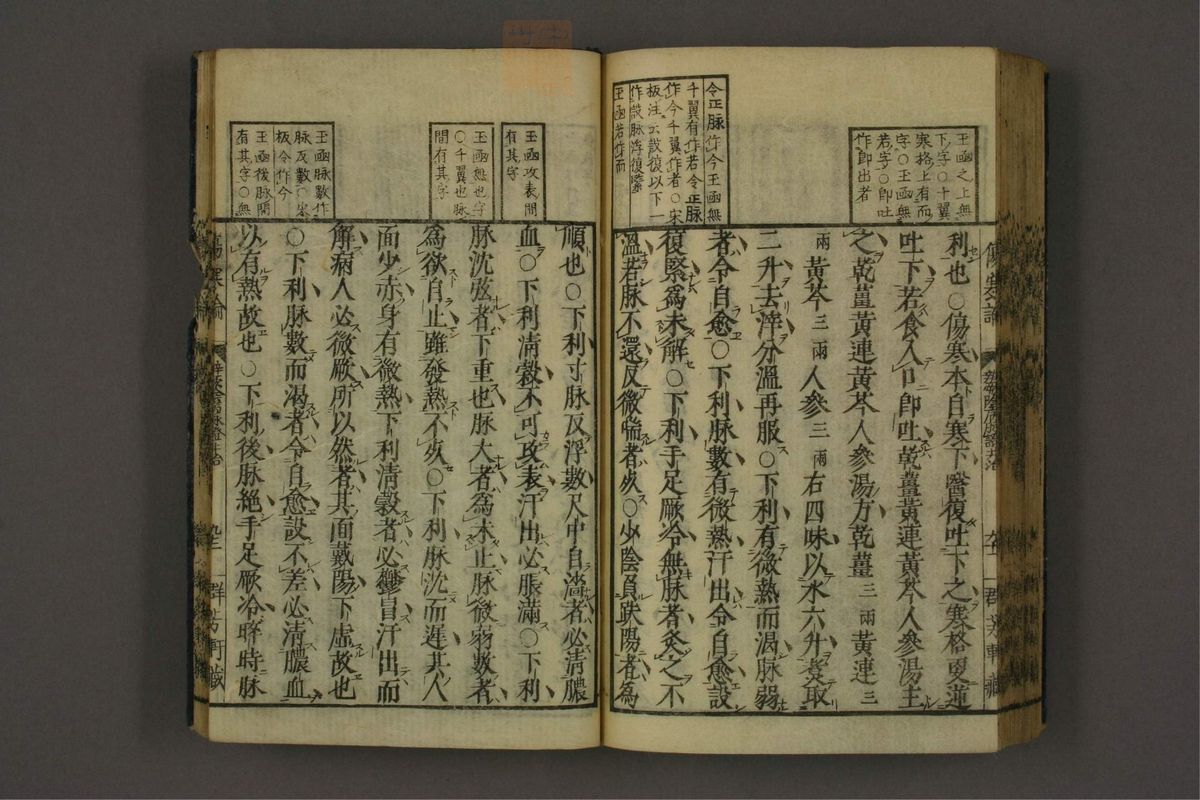 玉函之上無
下字○千翼
寒格上有而
字○玉函無
若字○卽吐
作卽出者
令正脉作今玉函無
千翼有作若令正脉
作今千翼作者○宋
板注云設復以下一
作設脉浮復緊
玉函若作而
利也○傷寒本自寒下醫復吐下之寒格更逆
吐下若食入口卽吐乾薑黃連黃芩人參湯主
之乾薑黃連黃芩人參湯方乾薑三兩黃連三
兩黃芩三兩人參三兩右四味以水六升煑取
二升去滓分溫再服○下利有微熱而渴脉弱
者令自愈○下利脉數有微熱汗出令自愈設
復緊爲未解○下利手足厥冷無脉者灸之不
溫若脉不還反微喘者死○少陰負趺陽者爲
玉函攻表間
有其字
玉函無也字
○千翼也脉
間有其字
玉函脉數作
脉反數○宋
板令作今
玉函後脉間
有其字○無
順也○下利寸脉反浮數尺中自濇者必淸膿
血○下利淸穀不可攻表汗出必脹滿○下利
脉沈弦者下重也脉大者爲未止脉微弱數者
爲欲自止雖發熱不死○下利脉沈而遲其人
面少赤身有微熱下利淸穀者必鬱冒汗出而
解病人必微厥所以然者其面戴陽下虛故也
○下利脉數而渴者令自愈設不差必淸膿血
以有熱故也○下利後脉絕手足厥冷晬時脉
傷寒論